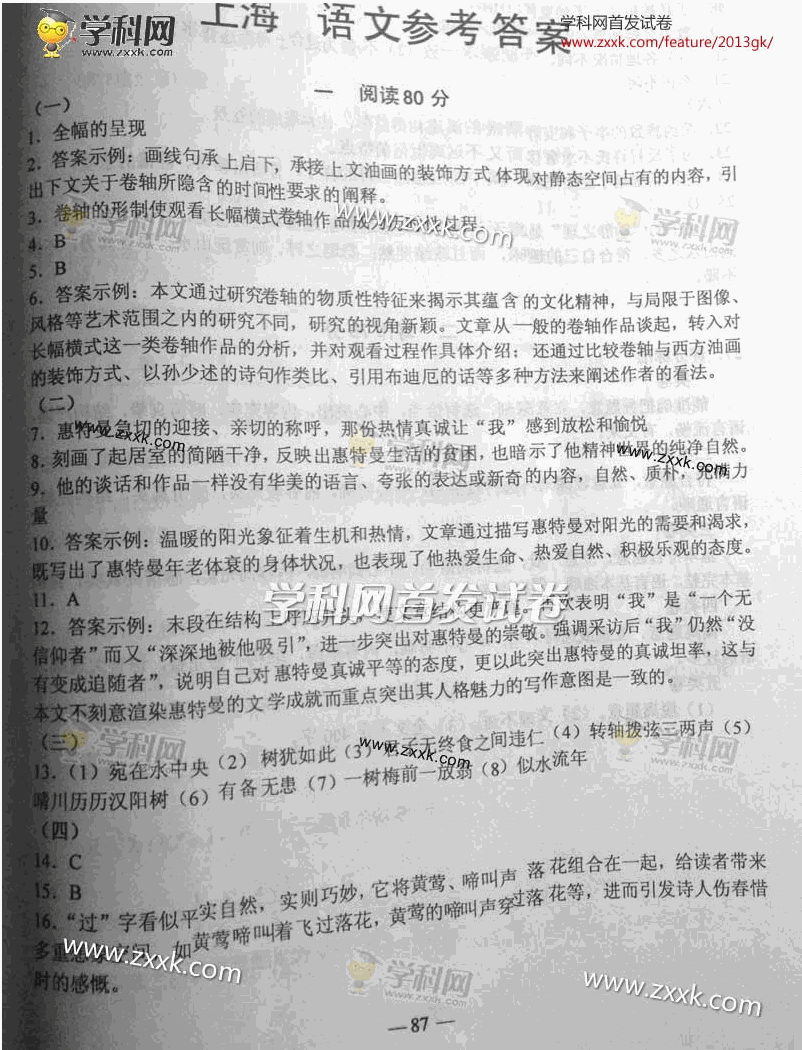 学科网
上海 语文参考答案
学科网首发试卷
www.zxxk.com/feature/2013gk/
www.zxxk.com
一 阅读80分
(一)
1. 全幅的呈现
2. 答案示例：画线句承上启下，承接上文油画的装饰方式体现对静态空间占有的内容，引
出下文关于卷轴所隐含的时间性要求的阐释。
3. 卷轴的形制使观看长幅横式卷轴作品成为
过程
www.zxxk.com
学科网
4. B
5. B
6. 答案示例：本文通过研究卷轴的物质性特征来揭示其蕴含的文化精神，与局限于图像、
风格等艺术范围之内的研究不同，研究的视角新颖。文章从一般的卷轴作品谈起，转入对
长幅横式这一类卷轴作品的分析，并对观看过程作具体介绍；还通过比较卷轴与西方油画
的装饰方式、以孙少述的诗句作类比、引用布迪厄的话等多种方法来阐述作者的看法。
(二)
7. 惠特曼急切的迎接、亲切的称呼，那份热情真诚让“我”感到放松和愉悦
www.zxxk.com
8. 刻画了起居室的简陋干净，反映出惠特曼生活的贫困，也暗示了他精神世界的纯净自然。
学科网
www.zxxk.com
9. 他的谈话和作品一样没有华美的语言、夸张的表达或新奇的内容，自然、质朴，充满力
量
10. 答案示例：温暖的阳光象征着生机和热情，文章通过描写惠特曼对阳光的需要和渴求，
既写出了惠特曼年老体衰的身体状况，也表现了他热爱生命、热爱自然、积极乐观的态度。
学科网首发试卷
11. A
12. 答案示例：末段在结构上
次表明“我”是“一个无
信仰者”而又“深深地被他吸引”，进一步突出对惠特曼的崇敬。强调采访后“我”仍然“没
有变成追随者”，说明自己对惠特曼真诚平等的态度，更以此突出惠特曼的真诚坦率，这与
本文不刻意渲染惠特曼的文学成就而重点突出其人格魅力的写作意图是一致的。
(三)
学科网
www.zxxk.com
13. (1) 宛在水中央 (2) 树犹如此 (3) 君子无终食之间违仁 (4) 转轴拨弦三两声 (5)
晴川历历汉阳树 (6) 有备无患 (7) 一树梅前一放翁 (8) 似水流年
(四)
14. C
15. B
16. “过”字看似平实自然，实则巧妙，它将黄莺、啼叫声 落花组合在一起，给读者带来
多重想象空间，如黄莺啼叫着飞过落花，黄莺的啼叫声穿过落花等，进而引发诗人伤春惜
时的感慨。
www.zxxk.com
学科网
www.zxxk.com
—87—